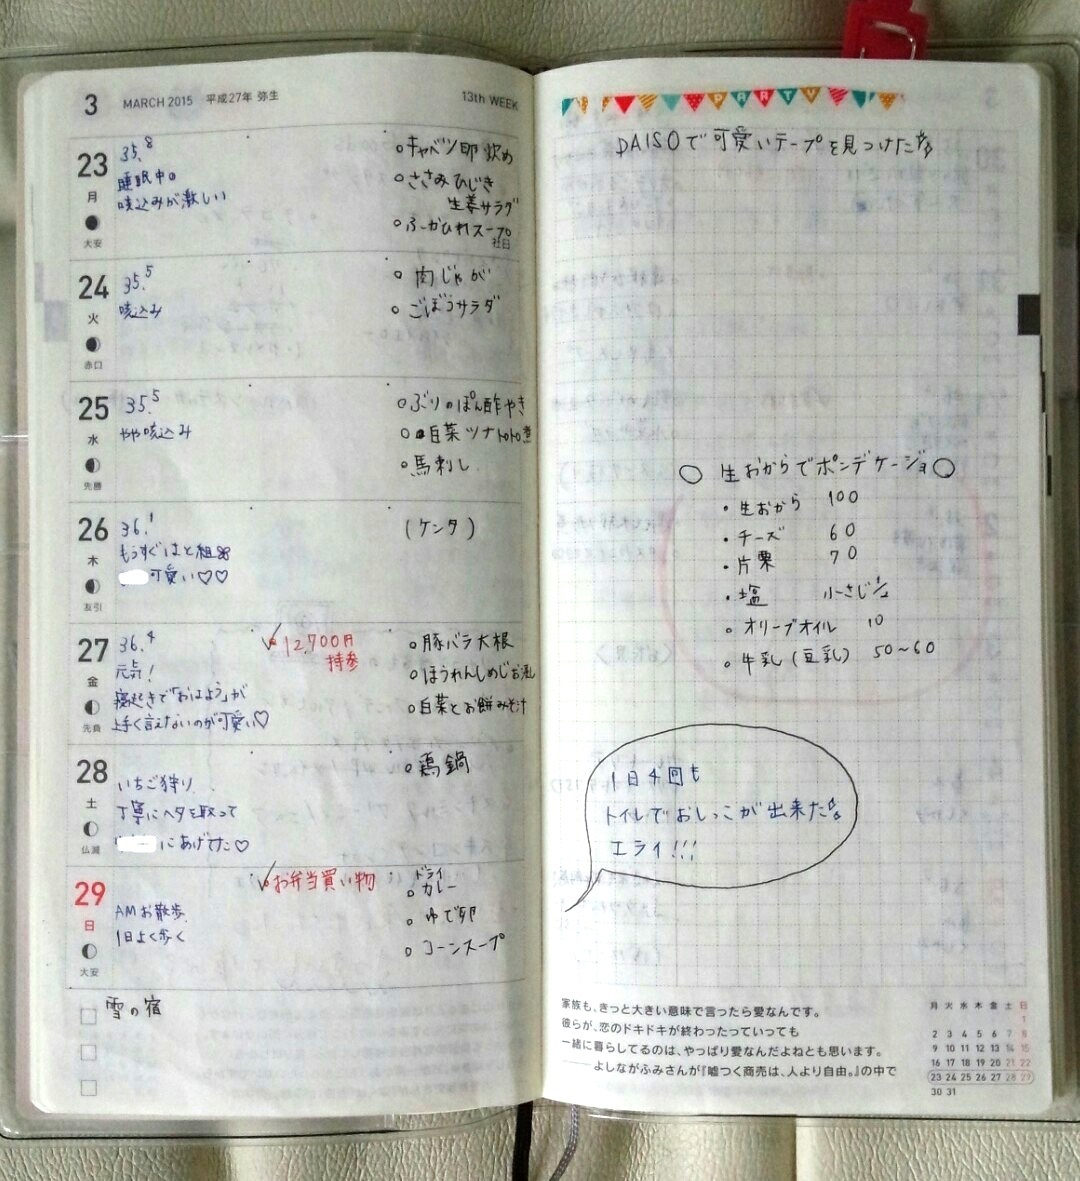 3 MARCH 2015 平成27年 弥生 13th WEEK
23 月 大安
35.8
睡眠中の
咳込みが激しい
○キャベツ卵炒め
○ささみひじき
生姜サラダ
○ふかひれスープ
社日
24 火 赤口
35.5
咳込み
○肉じゃが
○ごぼうサラダ
25 水 先勝
35.5
やや咳込み
○ぶりのぽん酢やき
○白菜ツナトロトロ煮
○馬刺し
26 木 友引
36.1
もうすぐはと組
可愛い♡♡
(ケンタ)
27 金 先負
36.4
元気!
寝起きで「おはよう」が
上手く言えないのが可愛い♡
✓12,700円
持参
○豚バラ大根
○ほうれんしめじお浸し
○白菜とお餅みそ汁
28 土 仏滅
いちご狩り
丁寧にヘタを取って
にあげてた♡
○鶏鍋
29 日 大安
AMお散歩
1日よく歩く
✓お弁当買い物
○ドライカレー
○ゆで卵
○コーンスープ
雪の宿
PARTY
DAISOで可愛いテープを見つけた
○生おからでポンデケージョ○
・生おから 100
・チーズ 60
・片栗 70
・塩 小さじ1/2
・オリーブオイル 10
・牛乳(豆乳) 50~60
1日4回も
トイレでおしっこが出来た
エライ!!!
家族も、きっと大きい意味で言ったら愛なんです。
彼らが、恋のドキドキが終わったっていっても
一緒に暮らしてるのは、やっぱり愛なんだよねとも思います。
──よしながふみさんが『嘘つく商売は、人より自由。』の中で
月 火 水 木 金 土 日
1
2 3 4 5 6 7 8
9 10 11 12 13 14 15
16 17 18 19 20 21 22
23 24 25 26 27 28 29
30 31